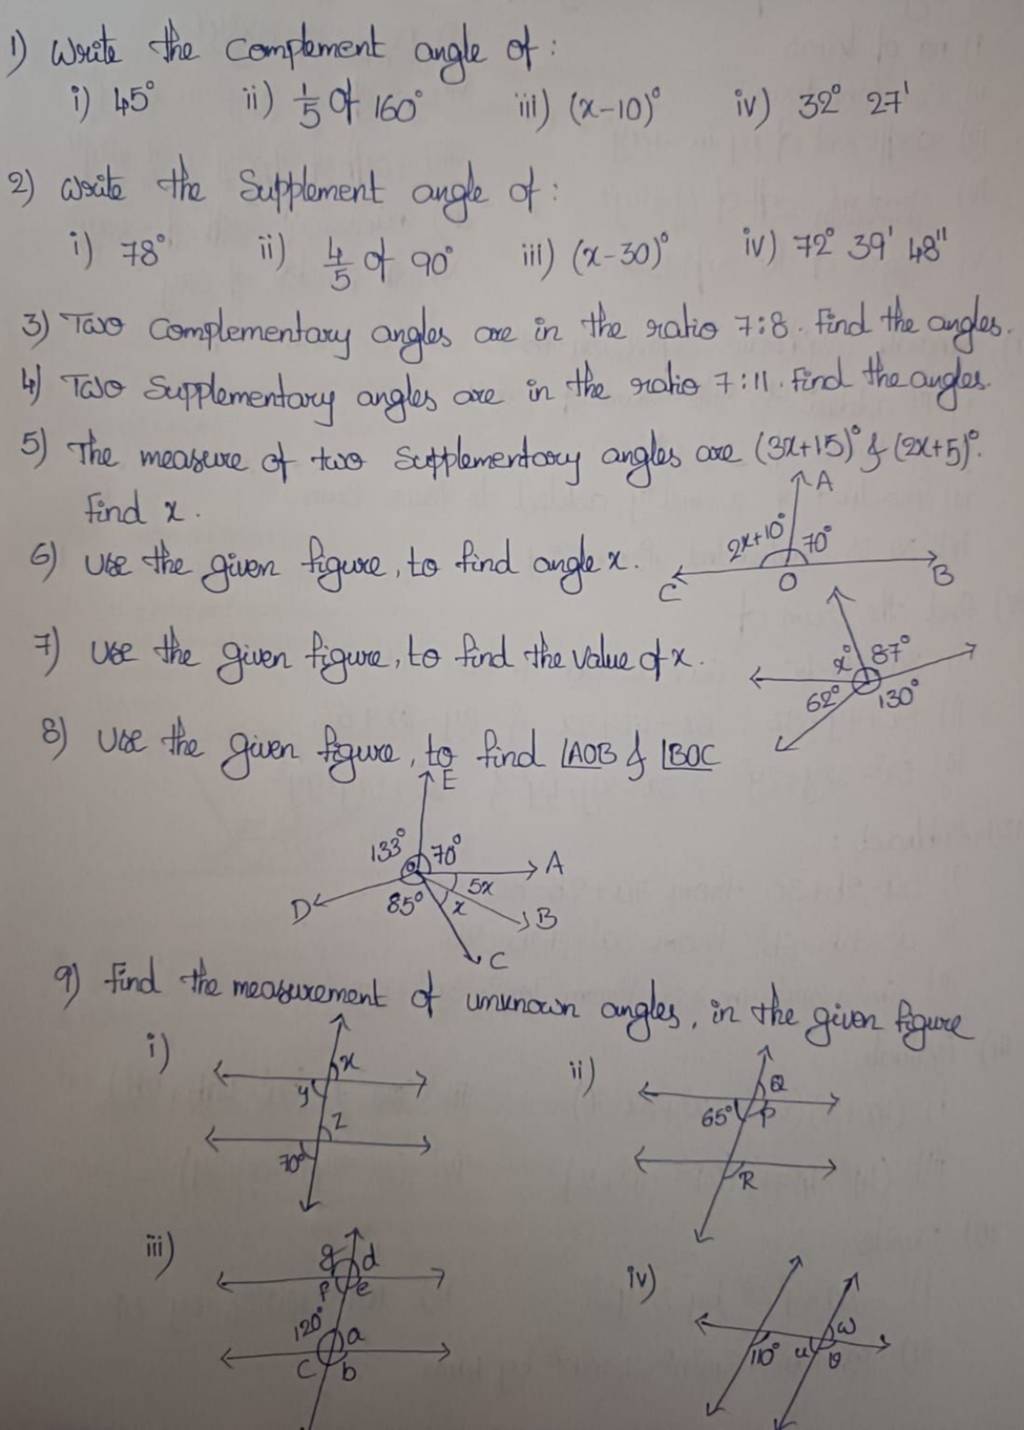 1) Write the complement angle of :
i) 45° ii) 1/5 of 160° iii) (x-10)° iv) 32° 27'
2) Write the Supplement angle of :
i) 78° ii) 4/5 of 90° iii) (x-30)° iv) 72° 39' 48"
3) Two complementary angles are in the ratio 7:8. Find the angles.
4) Two Supplementary angles are in the ratio 7:11. Find the angles.
5) The measure of two supplementary angles are (3x+15)° & (2x+5)°.
Find x.
A
2x+10° 70°
6) Use the given figure, to find angle x.
C O B
7) Use the given figure, to find the value of x.
x° 87°
62° 130°
8) Use the given figure, to find ∠AOB & ∠BOC
E
133° 70°
A
D 85° x 5x
B
C
9) Find the measurement of unknown angles, in the given figure
i) x
y
z
70°
ii) Q
65° P
R
iii) g d
f e
120° a
c b
iv) w
110° u v